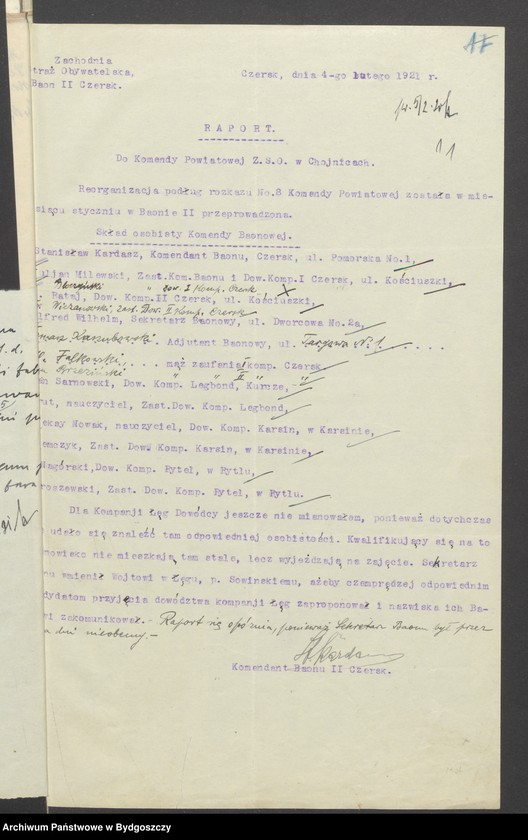 Zachodnia
traż Obywatelska,
Baon II Czersk.
Czersk, dnia 4-go lutego 1921 r.
17
11
RAPORT.
Do Komendy Powiatowej Z.S.O. w Chojnicach.
Reorganizacja podług rozkazu No.8 Komendy Powiatowej została w mie-
siącu styczniu w Baonie II przeprowadzona.
Skład osobisty Komendy Baonowej.
Stanisław Kardasz, Komendant Baonu, Czersk, ul. Pomorska No.1,
ljan Milewski, Zast.Kom.Baonu i Dow.Komp.I Czersk, ul. Kościuszki,
" zow. I Komp. Czersk
Rataj, Dow. Komp.II Czersk, ul. Kościuszki,
zast. Dow. II Komp. Czersk
lfred Wilhelm, Sekretarz Baonowy, ul. Dworcowa No.2a,
Kaszubowski. Adjutant Baonowy, ul. Targowa No 1. ....
Felkowski, .... mąż zaufania I komp. Czersk
" " II " "
n Sarnowski, Dow. Komp. Legbond, Kurcze,
rut, nauczyciel, Zast.Dow. Komp. Legbond,
eksy Nowak, nauczyciel, Dow. Komp. Karsin, w Karsinie,
emczyk, Zast. Dow. Komp. Karsin, w Karsinie,
agórski, Dow. Komp. Rytel, w Rytlu,
roszewski, Zast. Dow. Komp. Rytel, w Rytlu.
Dla Kompanji Łęg Dowódcy jeszcze nie mianowałem, ponieważ dotychczas
udało się znaleść tam odpowiedniej osobistości. Kwalifikujący się na to
nowisko nie mieszkają tam stale, lecz wyjeżdżają na zajęcie. Sekretarz
nu wmienił Wojtowi w Łęgu, p. Sowinskiemu, ażeby czemprędzej odpowiednim
dydatom przyjęcia dowództwa kompanji Łęg zaproponował i nazwiska ich Ba-
wi zakomunikował. - Raport się opóźnia, ponieważ Sekretarz Baonu był przez
dni nieobecny. -
Kardasz
Komendant Baonu II Czersk.
Archiwum Państwowe w Bydgoszczy